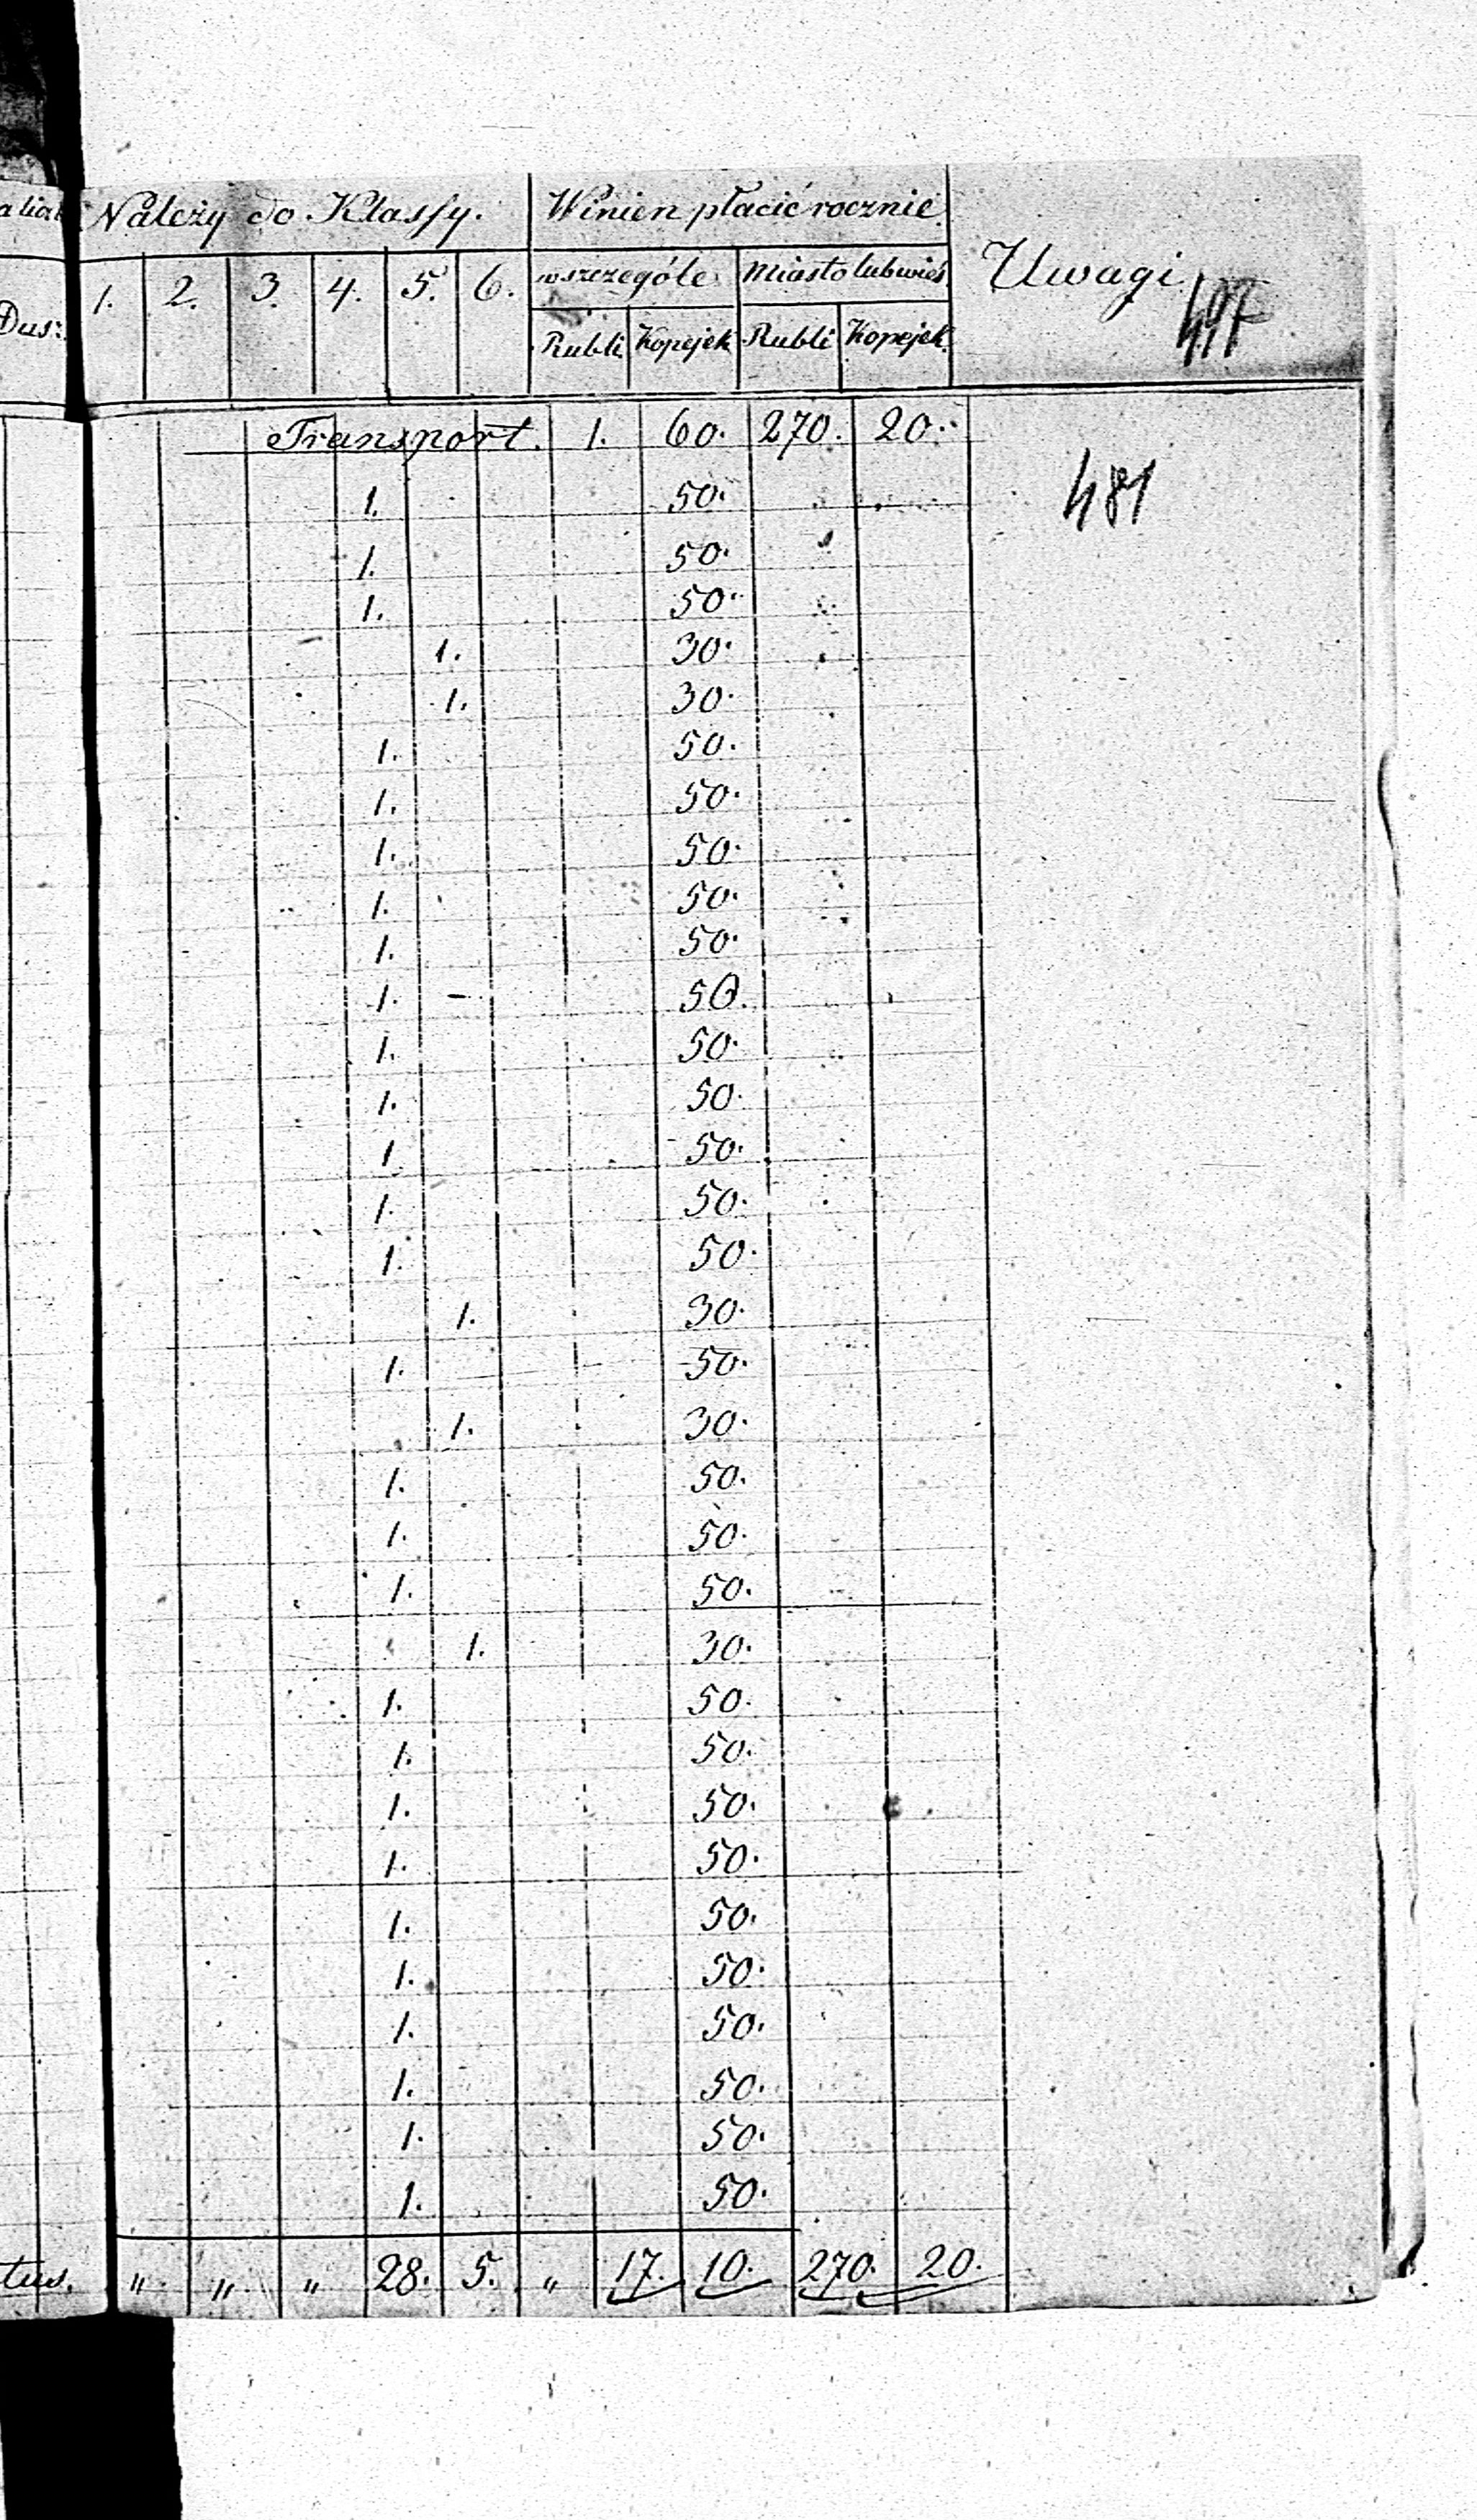 Należy do Klassy. Winien płacić rocznie Uwagi
1. 2. 3. 4. 5. 6. wszczególe Miasto lub wieś
Dus: Rubli Kopejek Rubli Kopejek
Transport. 1. 60. 270. 20.
481
1. 50.
1. 50.
1. 50.
1. 30.
1. 30.
1. 50.
1. 50.
1. 50.
1. 50.
1. 50.
1. 50.
1. 50.
1. 50.
1 50.
1. 50.
1. 50.
1. 30.
1. 50.
1. 30.
1. 50.
1. 50.
1. 50.
1. 30.
1. 50.
1. 50.
1. 50.
1. 50.
1. 50.
1. 50.
1. 50.
1. 50.
1. 50.
1. 50.
tus. " " " 28. 5. " 17. 10. 270. 20.